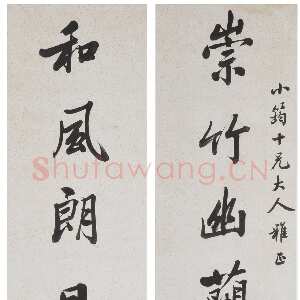 小蒟十兄大人雅正
崇竹幽蘭
和風朗月
Shufawang.CN